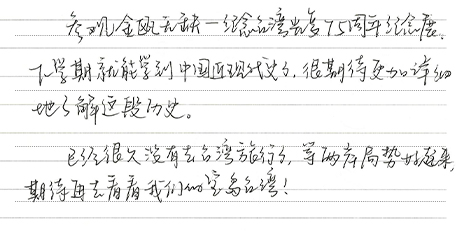 参观金瓯无缺—纪念台湾光复75周年纪念展，
下学期就能学到中国近现代史了，很期待更加详细
地了解这段历史。
已经很久没有去台湾旅行了，等两岸局势好起来，
期待再去看看我们的宝岛台湾！